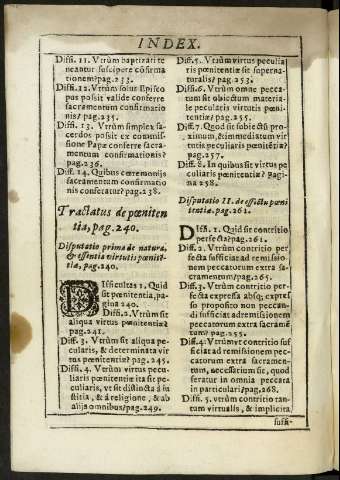 INDEX.
Diffi. 11. Vtrùm baptizati te
neantur suscipere cõfirma
tionem? pag.233.
Diffi.12. Vtrùm solus Episco
pus possit valide conferre
sacramentum confirmatio
nis? pag.235.
Diffi. 13. Vtrùm simplex sa-
cerdos possit ex commissi-
one Papæ conferre sacra-
mentum confirmationis?
pag.236.
Diff. 14. Quibus cæremonijs
sacramentum confirmatio
nis consecatur? pag.238.
Tractatus de pœniten
tia, pag. 240.
Disputatio prima de natura,
& essentia virtutis pœnitē-
tiæ, pag.240.
DIfficultas 1. Quid
sit pœnitentia, pa-
gina 240.
Diffi.2. Vtrùm sit
aliqua virtus pœnitentia?
pag.241.
Diff. 3. Vtrùm sit aliqua pe-
cularis, & determinata vir
tus pœnitētia? pag. 245.
Diffi. 4. Vtrùm virtus pecu
liaris pœnitentiæ ita sit pe-
culiaris, vt sit distincta á iu
stitia, & á religione, & ab
alijs omnibus? pag.249.
Diff.5. Vtrùm virtus peculia
ris pœnitentiæ sit superna-
turalis? pag.253.
Diffi.6. Vtrùm omne pecca-
tum sit obiectum materia-
le pecularis virtutis pœni-
tentiæ? pag.255.
Diff.7. Qnod sit obiectū pro
ximum, & immediatum vir
tutis peculiaris pœnitētiæ?
pag.257.
Diff. 8. In quibus sit virtus pe
culiaris pœnitentiæ? pagi-
na 258.
Disputatio II. de effectu pœni
tentiæ. pag.261.
DIffi. 1. Quid sit contritio
perfecta? pag.261.
Diff. 2. Vtrùm contritio per-
fecta sufficiat ad remissio-
nem peccatorum extra sa-
cramentum? pag.265.
Diff.3. Vtrùm contritio per-
fecta expressa absq; expres
so proposito non peccan-
di sufficiat ad remissionem
peccatorum extra sacramē
tum? pag.255.
Diff.4: Vtrùm vt contritio suf
ficiat ad remissionem pec-
catorum extra sacramen-
tum, necessarium sit, quod
feratur in omnia peccata
in particulari? pag,268.
Diffi. 5. vtrùm contritio tan-
tum virtualis, & implicita
suffi-